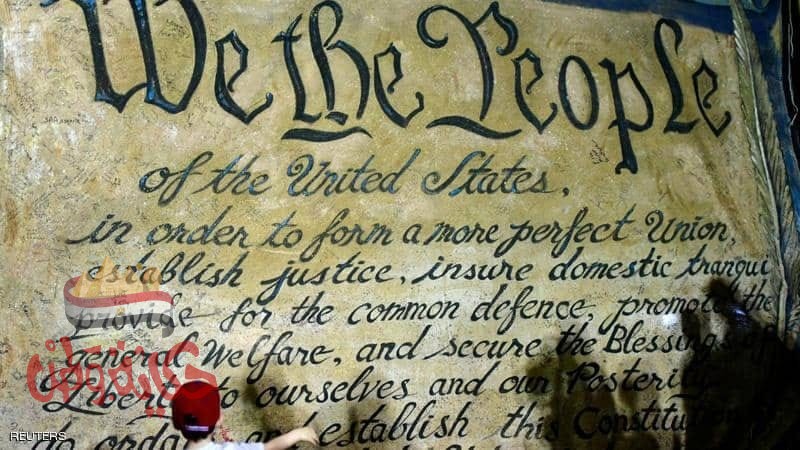 We the People
of the United States,
in order to form a more perfect Union,
establish justice, insure domestic tranqui
provide for the common defence, promote the
general Welfare, and secure the Blessings of
Liberty to ourselves and our Posterity
do ordain and establish this Constitution
REUTERS